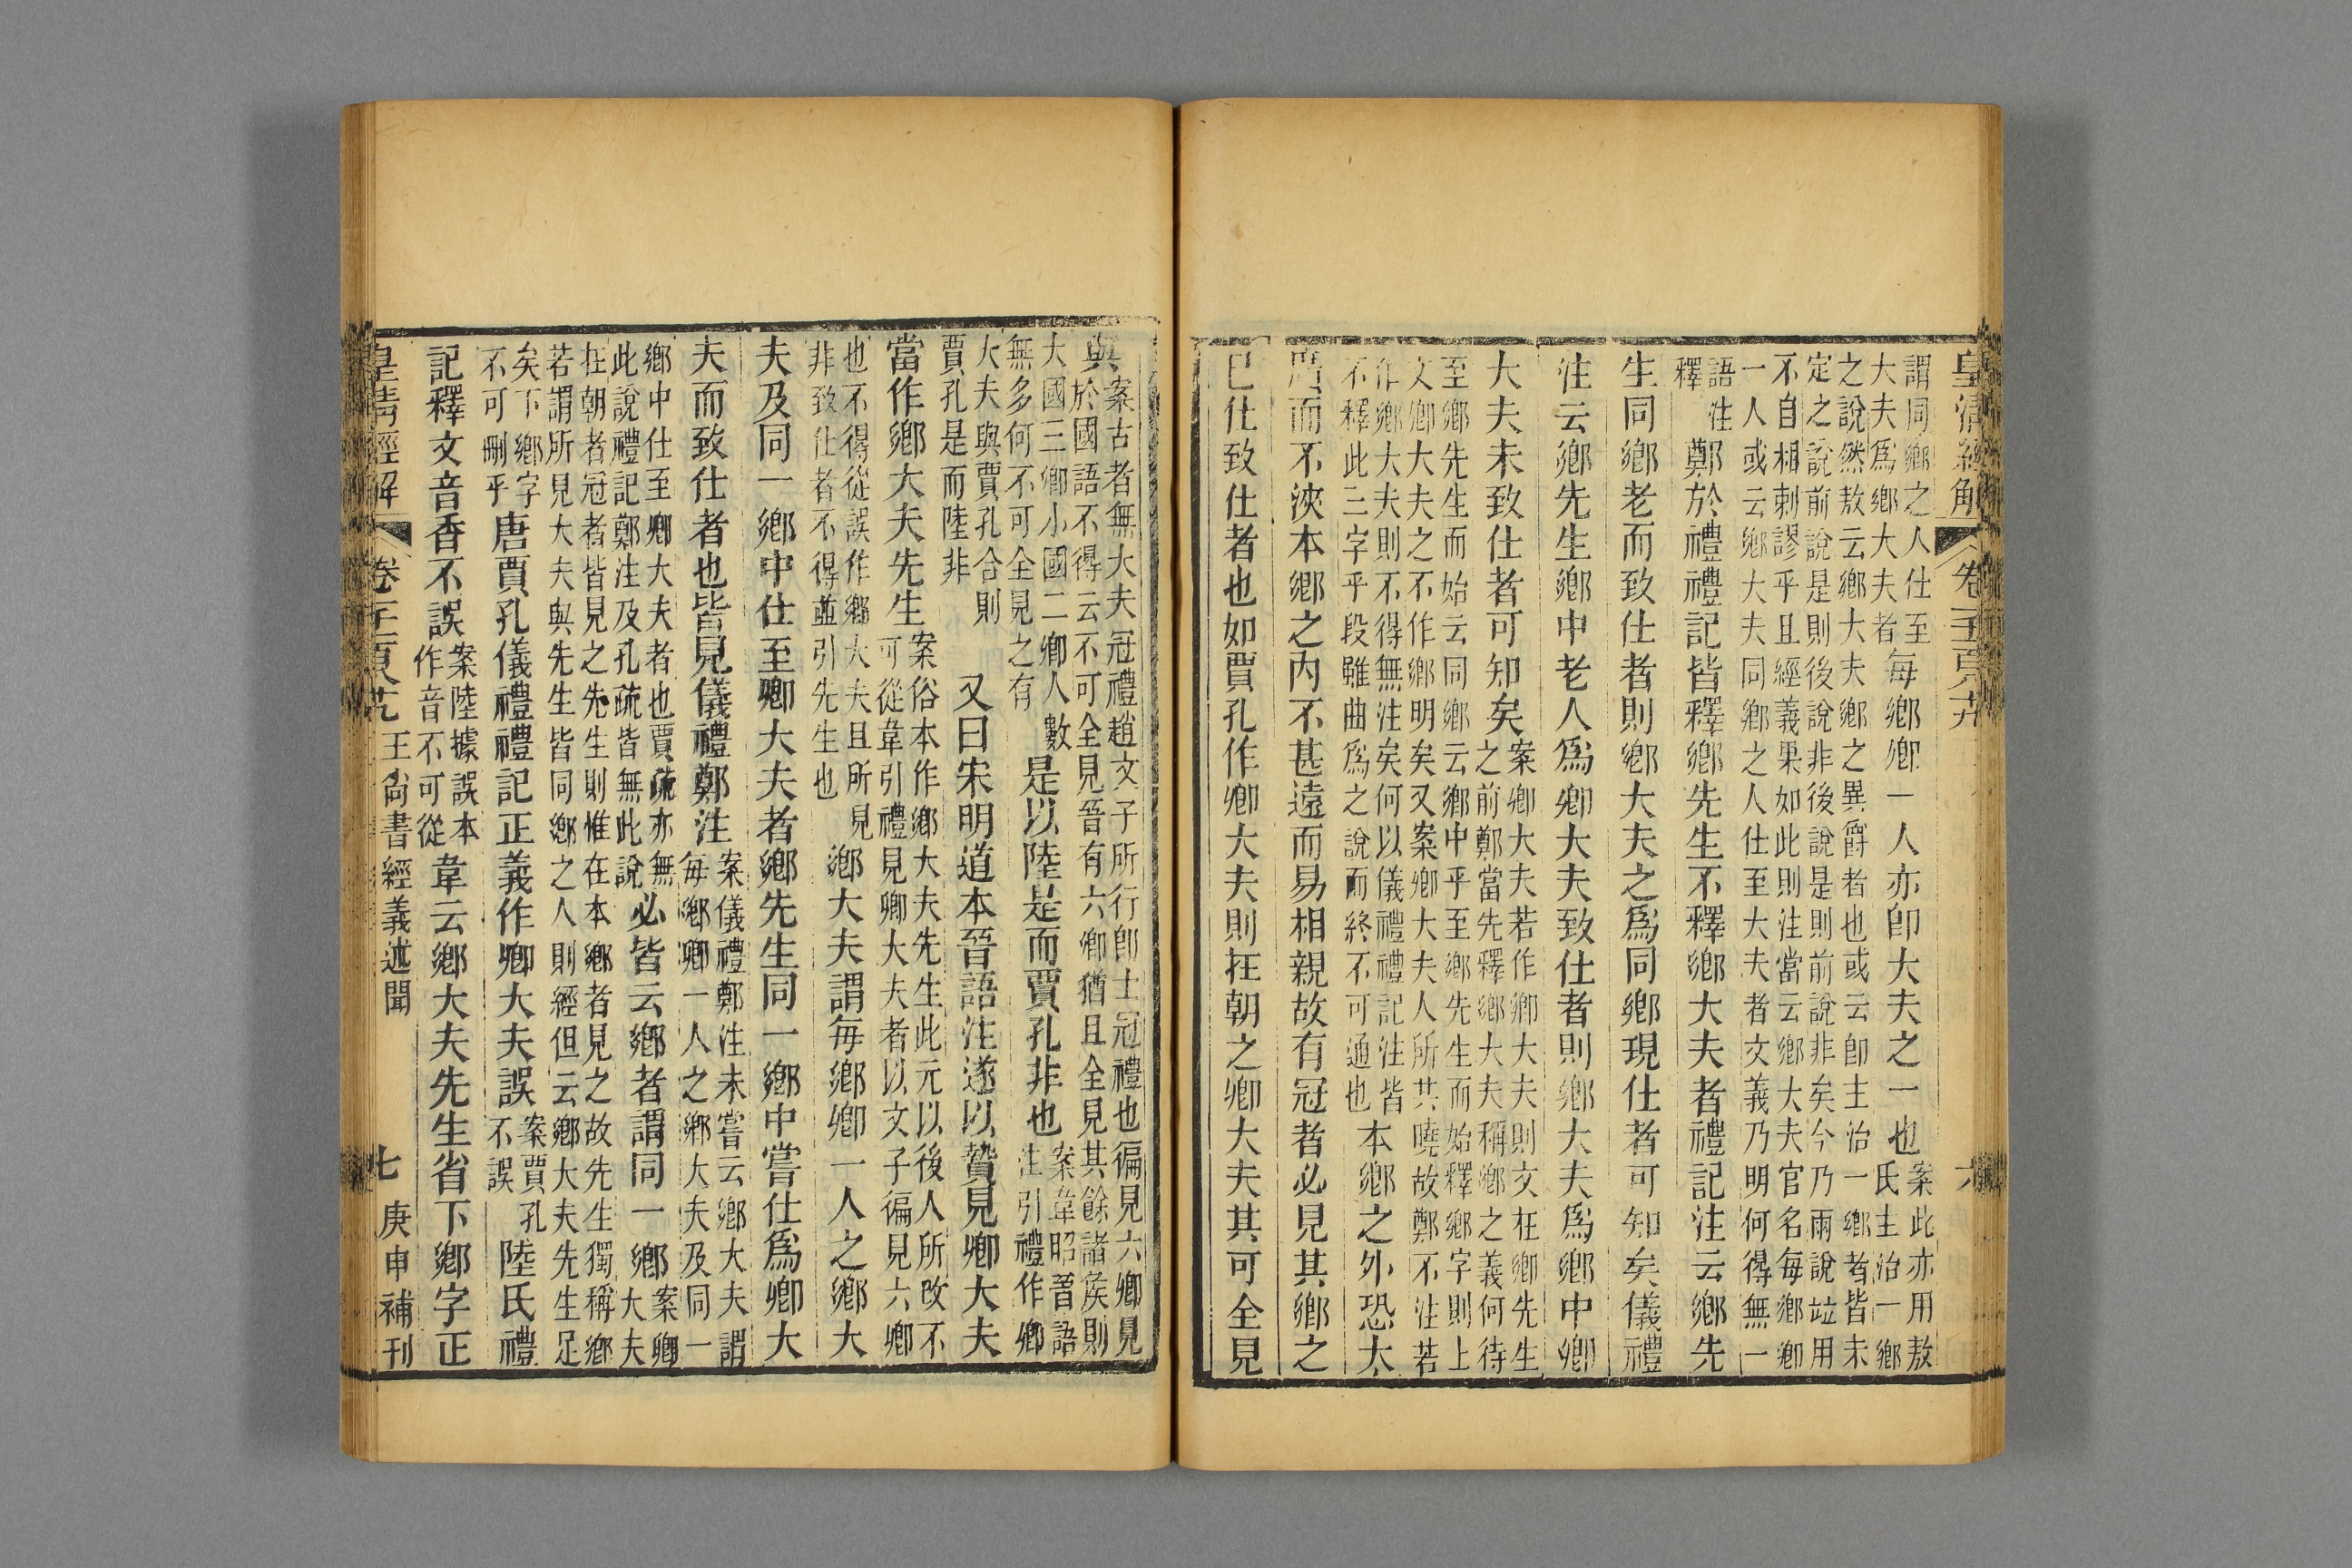 皇清經解
六
謂同鄉之人仕至
大夫爲鄉大夫者
每鄉卿一人亦卽大夫之一也
案此亦用敖
氏主治一鄉
之說然敖云鄉大夫鄉之異爵者也或云卽主治一鄉者皆未
定之說前說是則後說非後說是則前說非矣今乃兩說竝用
不自相刺謬乎且經義果如此則注當云鄉大夫官名每鄉卿
一人或云鄉大夫同鄉之人仕至大夫者文義乃明何得無一
語注
釋
鄭於禮禮記皆釋鄉先生不釋鄉大夫者禮記注云鄉先
生同鄉老而致仕者則鄉大夫之爲同鄉現仕者可知矣儀禮
注云鄉先生鄉中老人爲卿大夫致仕者則鄉大夫爲鄉中卿
大夫未致仕者可知矣
案卿大夫若作鄉大夫則文在鄉先生
之前鄭當先釋鄉大夫稱鄉之義何待
至鄉先生而始云同鄉云鄉中乎至鄉先生而始釋鄉字則上
文卿大夫之不作鄉明矣又案卿大夫人所共曉故鄭不注若
作鄉大夫則不得無注矣何以儀禮禮記注皆
不釋此三字乎段雖曲爲之說而終不可通也
本鄉之外恐太
廣而不浹本鄉之內不甚遠而易相親故有冠者必見其鄉之
已仕致仕者也如賈孔作卿大夫則在朝之卿大夫其可全見
與
案古者無大夫冠禮趙文子所行卽士冠禮也徧見六卿見
於國語不得云不可全見晉有六卿猶且全見其餘諸侯則
大國三卿小國二卿人數
無多何不可全見之有
是以陸是而賈孔非也
案韋昭晉語
注引禮作卿
大夫與賈孔合則
賈孔是而陸非
又曰宋明道本晉語注遂以贄見卿大夫
當作鄉大夫先生
案俗本作鄉大夫先生此元以後人所改不
可從韋引禮見卿大夫者以文子徧見六卿
也不得從誤作鄉大夫且所見
非致仕者不得並引先生也
鄉大夫謂每鄉卿一人之鄉大
夫及同一鄉中仕至卿大夫者鄉先生同一鄉中嘗仕爲卿大
夫而致仕者也皆見儀禮鄭注
案儀禮鄭注未嘗云鄉大夫謂
每鄉卿一人之鄉大夫及同一
鄉中仕至卿大夫者也賈疏亦無
此說禮記鄭注及孔疏皆無此說
必皆云鄉者謂同一鄉
案卿
大夫
在朝者冠者皆見之先生則惟在本鄉者見之故先生獨稱鄉
若謂所見大夫與先生皆同鄉之人則經但云鄉大夫先生足
矣下鄉字
不可刪乎
唐賈孔儀禮禮記正義作卿大夫誤
案賈孔
不誤
陸氏禮
記釋文音香不誤
案陸據誤本
作音不可從
韋云鄉大夫先生省下鄉字正
皇清經解
王尙書經義述聞
七
庚申補刊